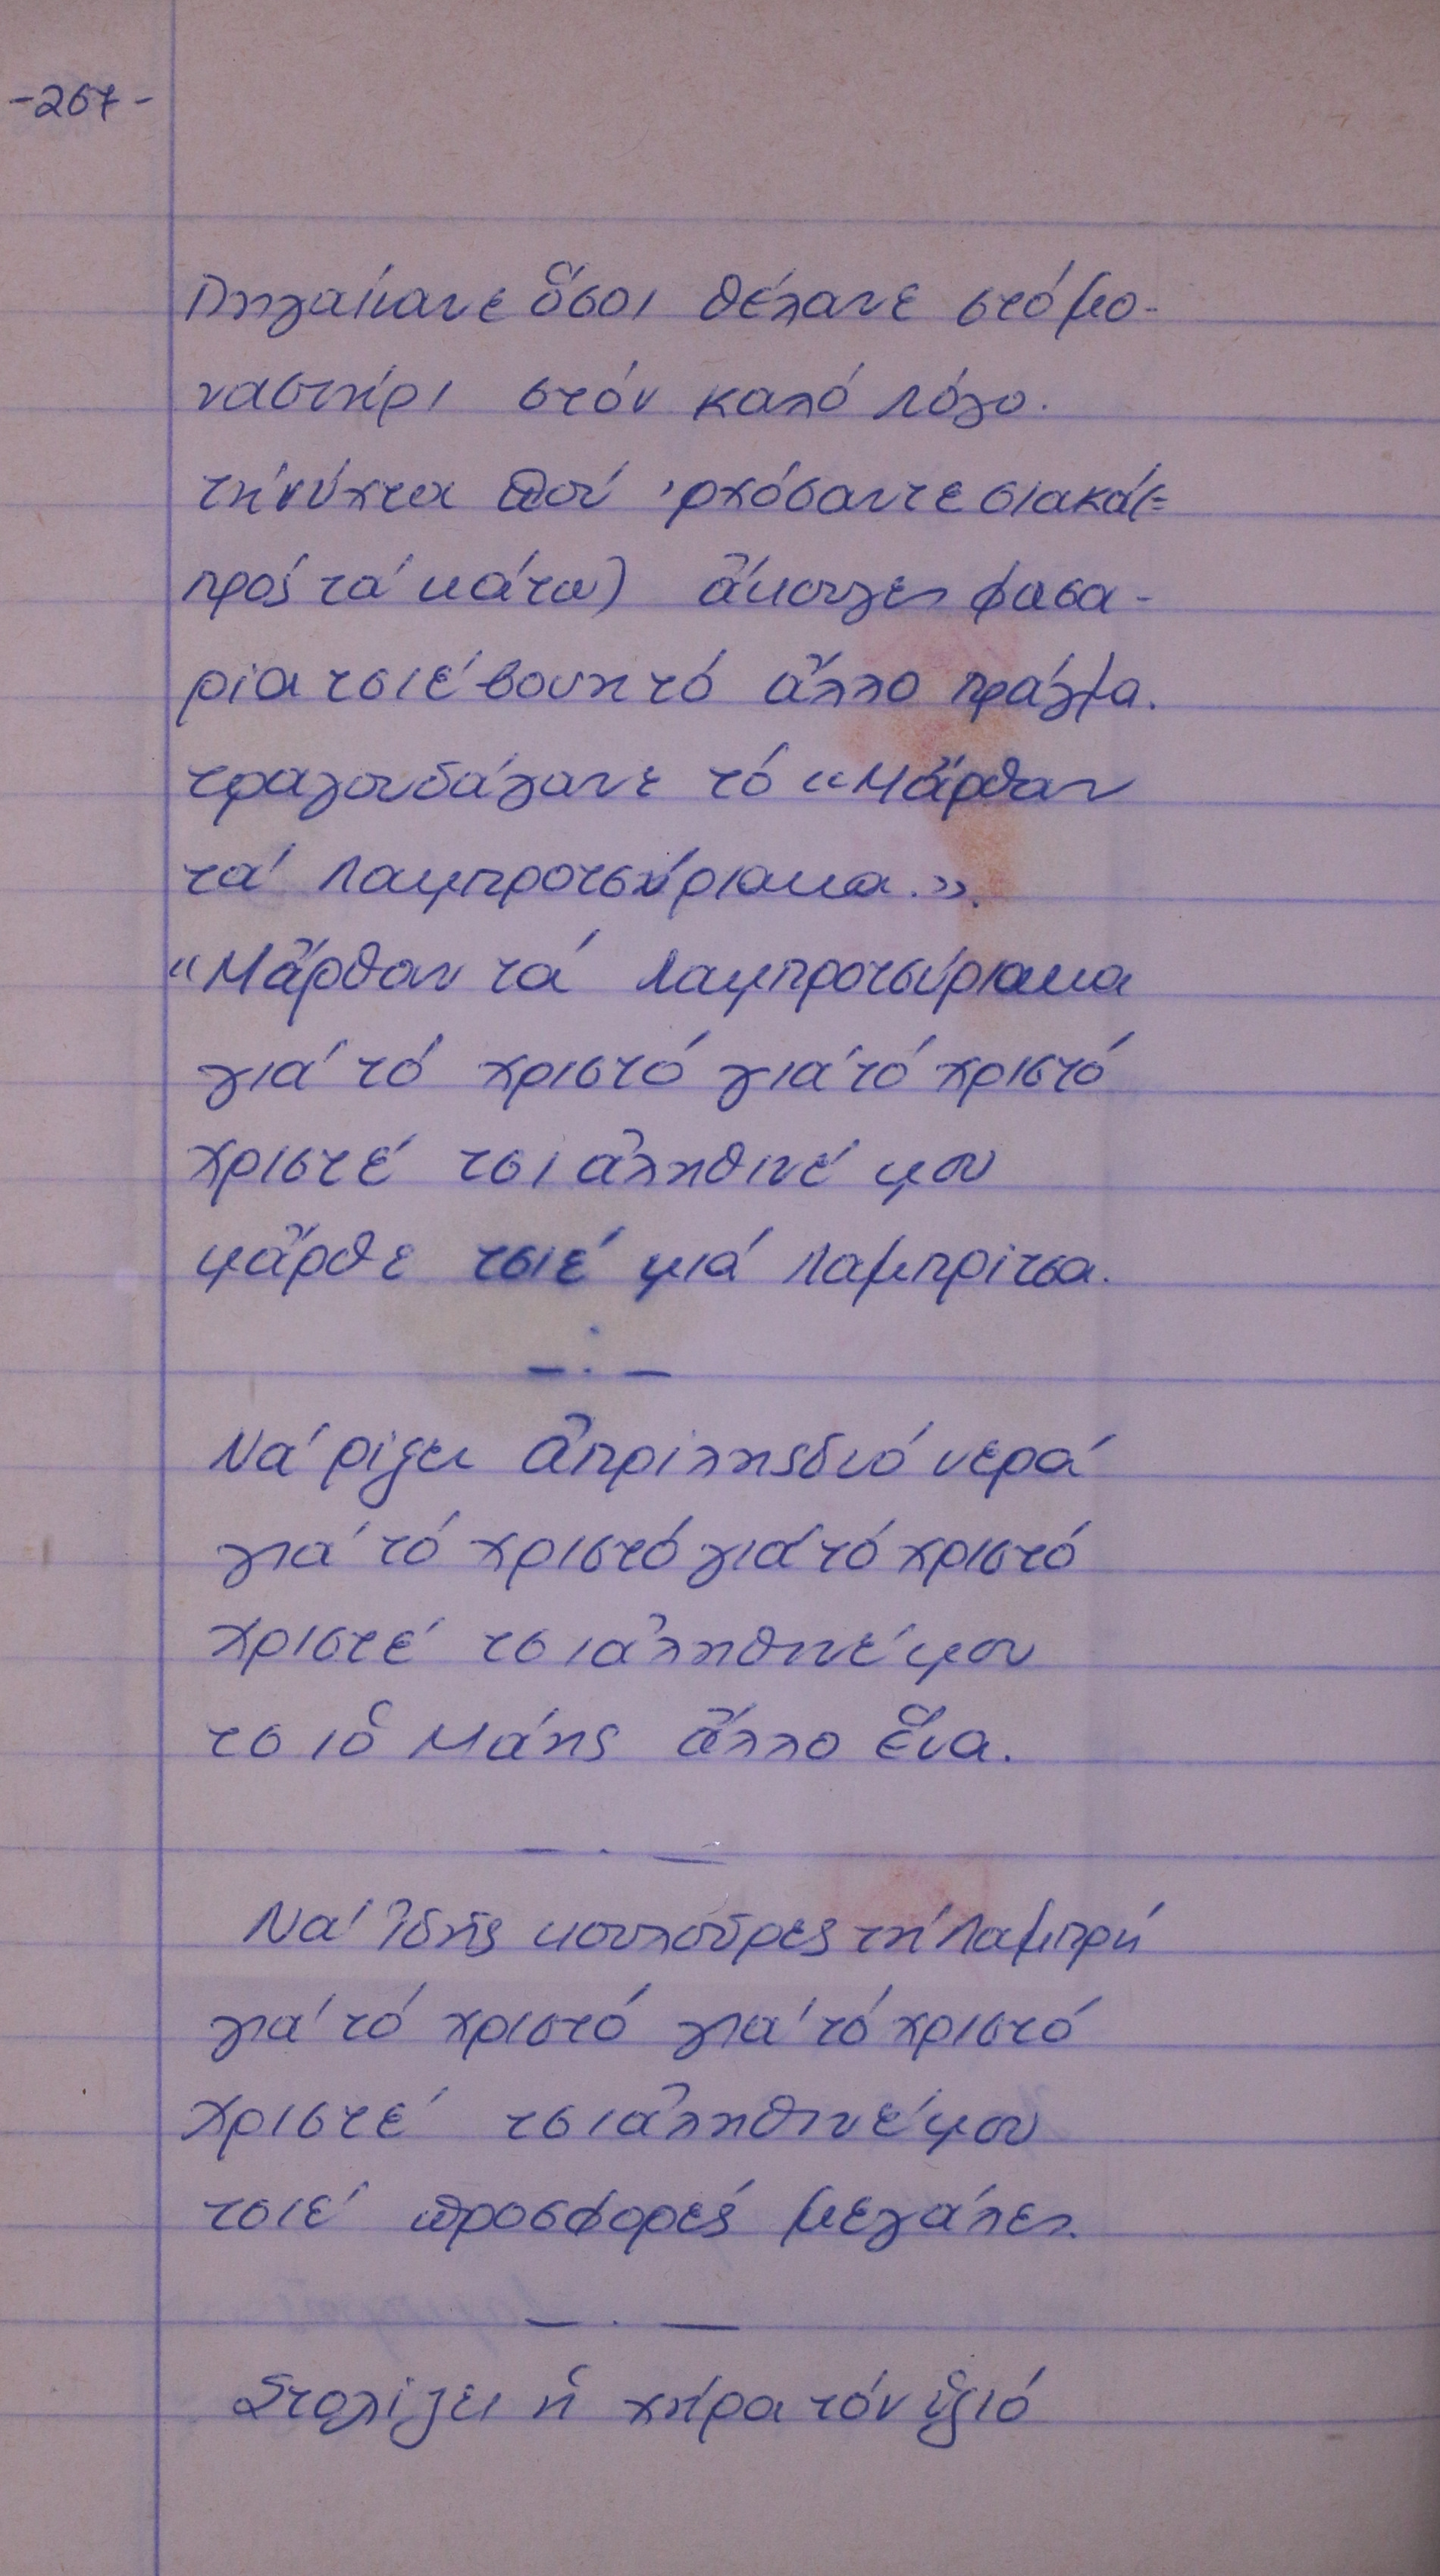 -267-
Πηγαίνανε ὅσοι θέλανε στό μο-
ναστήρι στόν καλό λόγο.
τήνύχτα πού 'ρχόσαντε σιακά(=
πρός τά κάτω) ἄκουγες φασα-
ρία τσιέ βουητό ἄλλο πράγμα.
τραγουδάγανε τό «Μἄρθαν
τά Λαμπροτσύριακα.».
«Μἄρθαν τά Λαμπροτσύριακα
γιά τό χριστό γιά τό χριστό
χριστέ τσι ἀληθινέ μου
μἄρθε τσιέ μιά Λαμπρίτσα.
Νά ρίξει ἀπρίληςδυό νερά
γιά τό χριστό γιά τό χριστό
χριστέ τσι ἀληθινέ μου
τσι ὁ Μάης ἄλλο ἕνα.
Νά ἰδῆς κουλοῦρες τή Λαμπρή
γιά τό χριστό γιά τό χριστό
χριστέ τσι ἀληθινέ μου
τσιέ προσφορές μεγάλες.
Στολίζει ἡ χήρα τόν ὑγιό